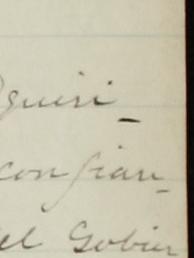 quiri-
con fian-
el Gobier